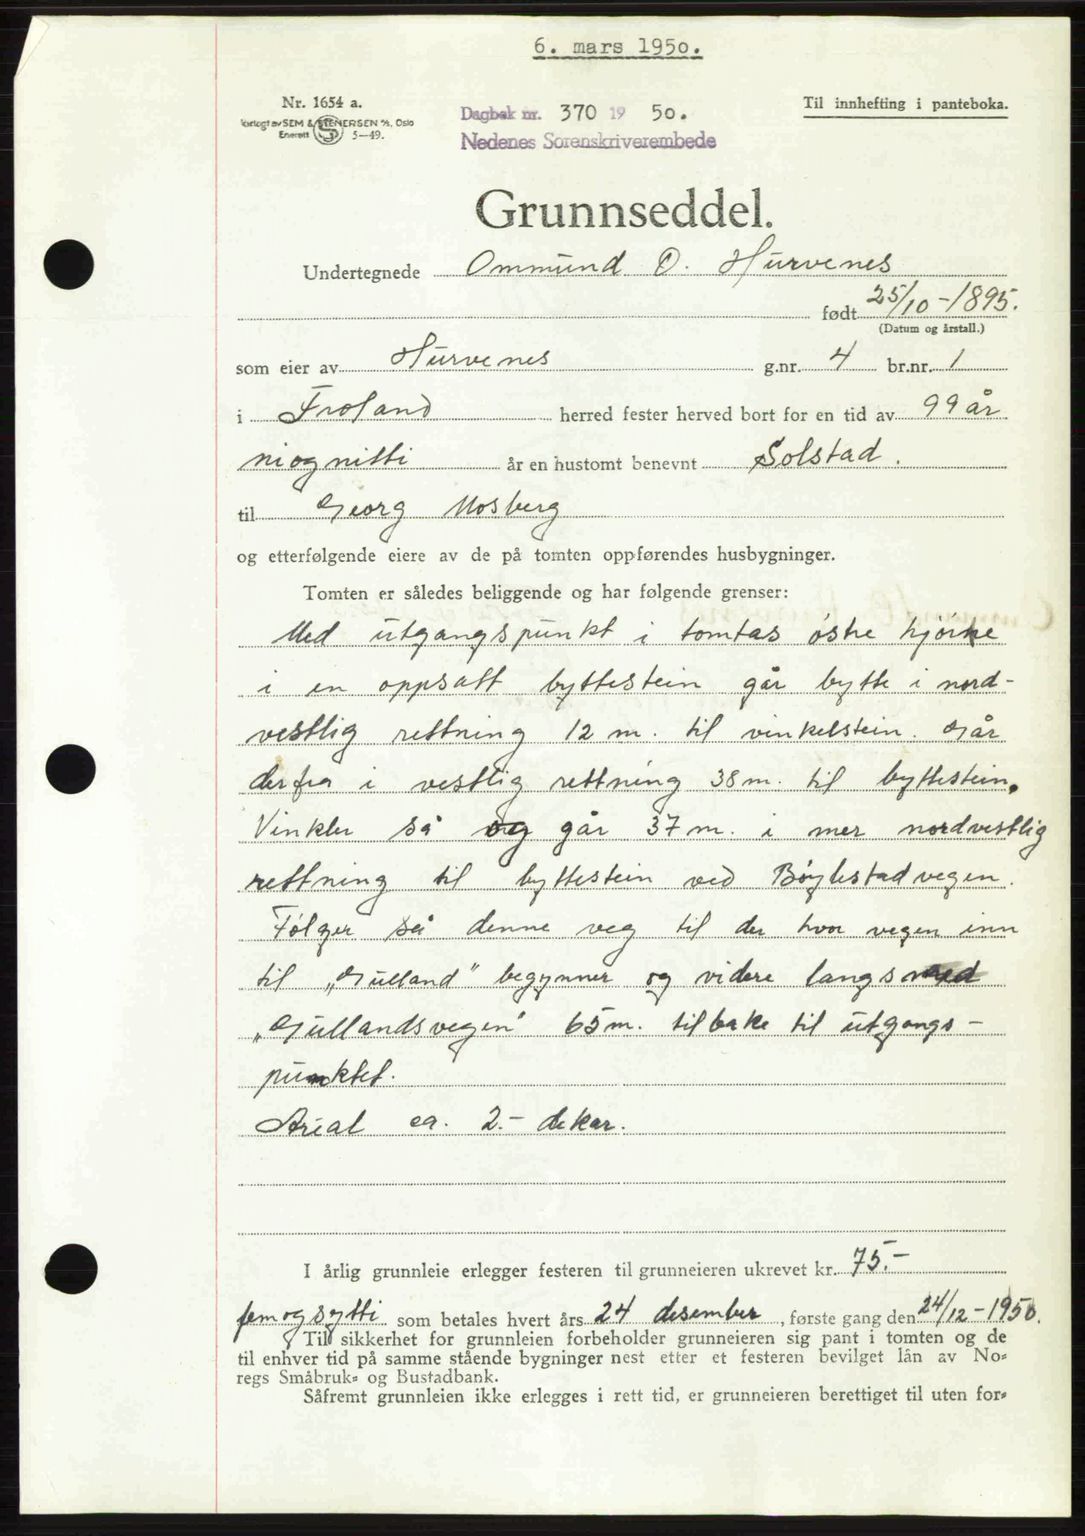 6. mars 1950.
Nr. 1654 a.
Forlagt av SEM & STENERSEN A/S, Oslo
Enerett 5—49.
Dagbok nr. 370 1950.
Nedenes Sorenskriverembede
Til innhefting i panteboka.
Grunnseddel.
Undertegnede Ommund O. Hurvenes
født 25/10-1895.
(Datum og årstall.)
som eier av Hurvenes g.nr. 4 br.nr. 1
i Froland herred fester herved bort for en tid av 99 år
niognitti år en hustomt benevnt Solstad.
til Georg Mosberg
og etterfølgende eiere av de på tomten oppførendes husbygninger.
Tomten er således beliggende og har følgende grenser:
Med utgangspunkt i tomtas østre hjørne
i en oppsatt byttestein går bytte i nord-
vestlig rettning 12 m. til vinkelstein. Går
derfra i vestlig rettning 38 m. til byttestein.
Vinkler så og går 37 m. i mer nordvestlig
rettning til byttestein ved Bøylestadvegen.
Følger så denne veg til der hvor vegen inn
til „Gulland" begynner og videre langs med
„Gullandsvegen" 65 m. tilbake til utgangs-
punktet.
Areal ca. 2.- dekar.
I årlig grunnleie erlegger festeren til grunneieren ukrevet kr. 75.-
femogsytti som betales hvert års 24 desember, første gang den 24/12-1950.
Til sikkerhet for grunnleien forbeholder grunneieren sig pant i tomten og de
til enhver tid på samme stående bygninger nest etter et festeren bevilget lån av No-
regs Småbruk- og Bustadbank.
Såfremt grunnleien ikke erlegges i rett tid, er grunneieren berettiget til uten for-